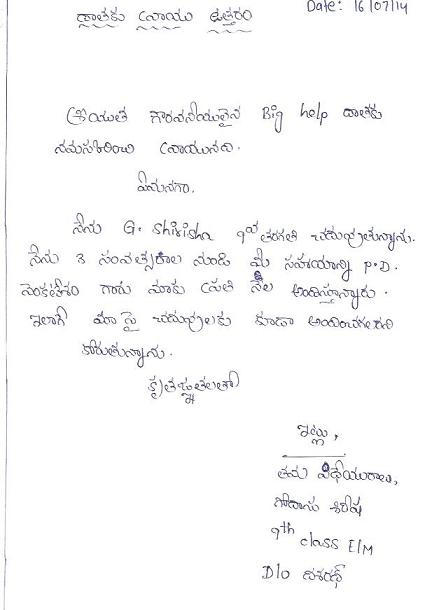 Date: 16/07/14
దాతకు వ్రాయు ఉత్తరం
శ్రీయుత గౌరవనీయులైన Big help దాతకు
నమస్కరించి వ్రాయునది.
ఏమనగా.
నేను G. Shirisha 9వ తరగతి చదువుతున్నాను.
నేను 3 సంవత్సరాల నుండి మీ సహాయాన్ని P.D.
వెంకటేశం గారు మాకు ప్రతి నెల అందిస్తున్నారు.
ఇలాగే మా పై చదువులకు కూడా అందించగలరని
కోరుతున్నాను.
కృతజ్ఞతలతో
ఇట్లు,
తమ విధేయురాలు,
గోదాసు శిరీష
9th class E/M
D/o దశరథ్